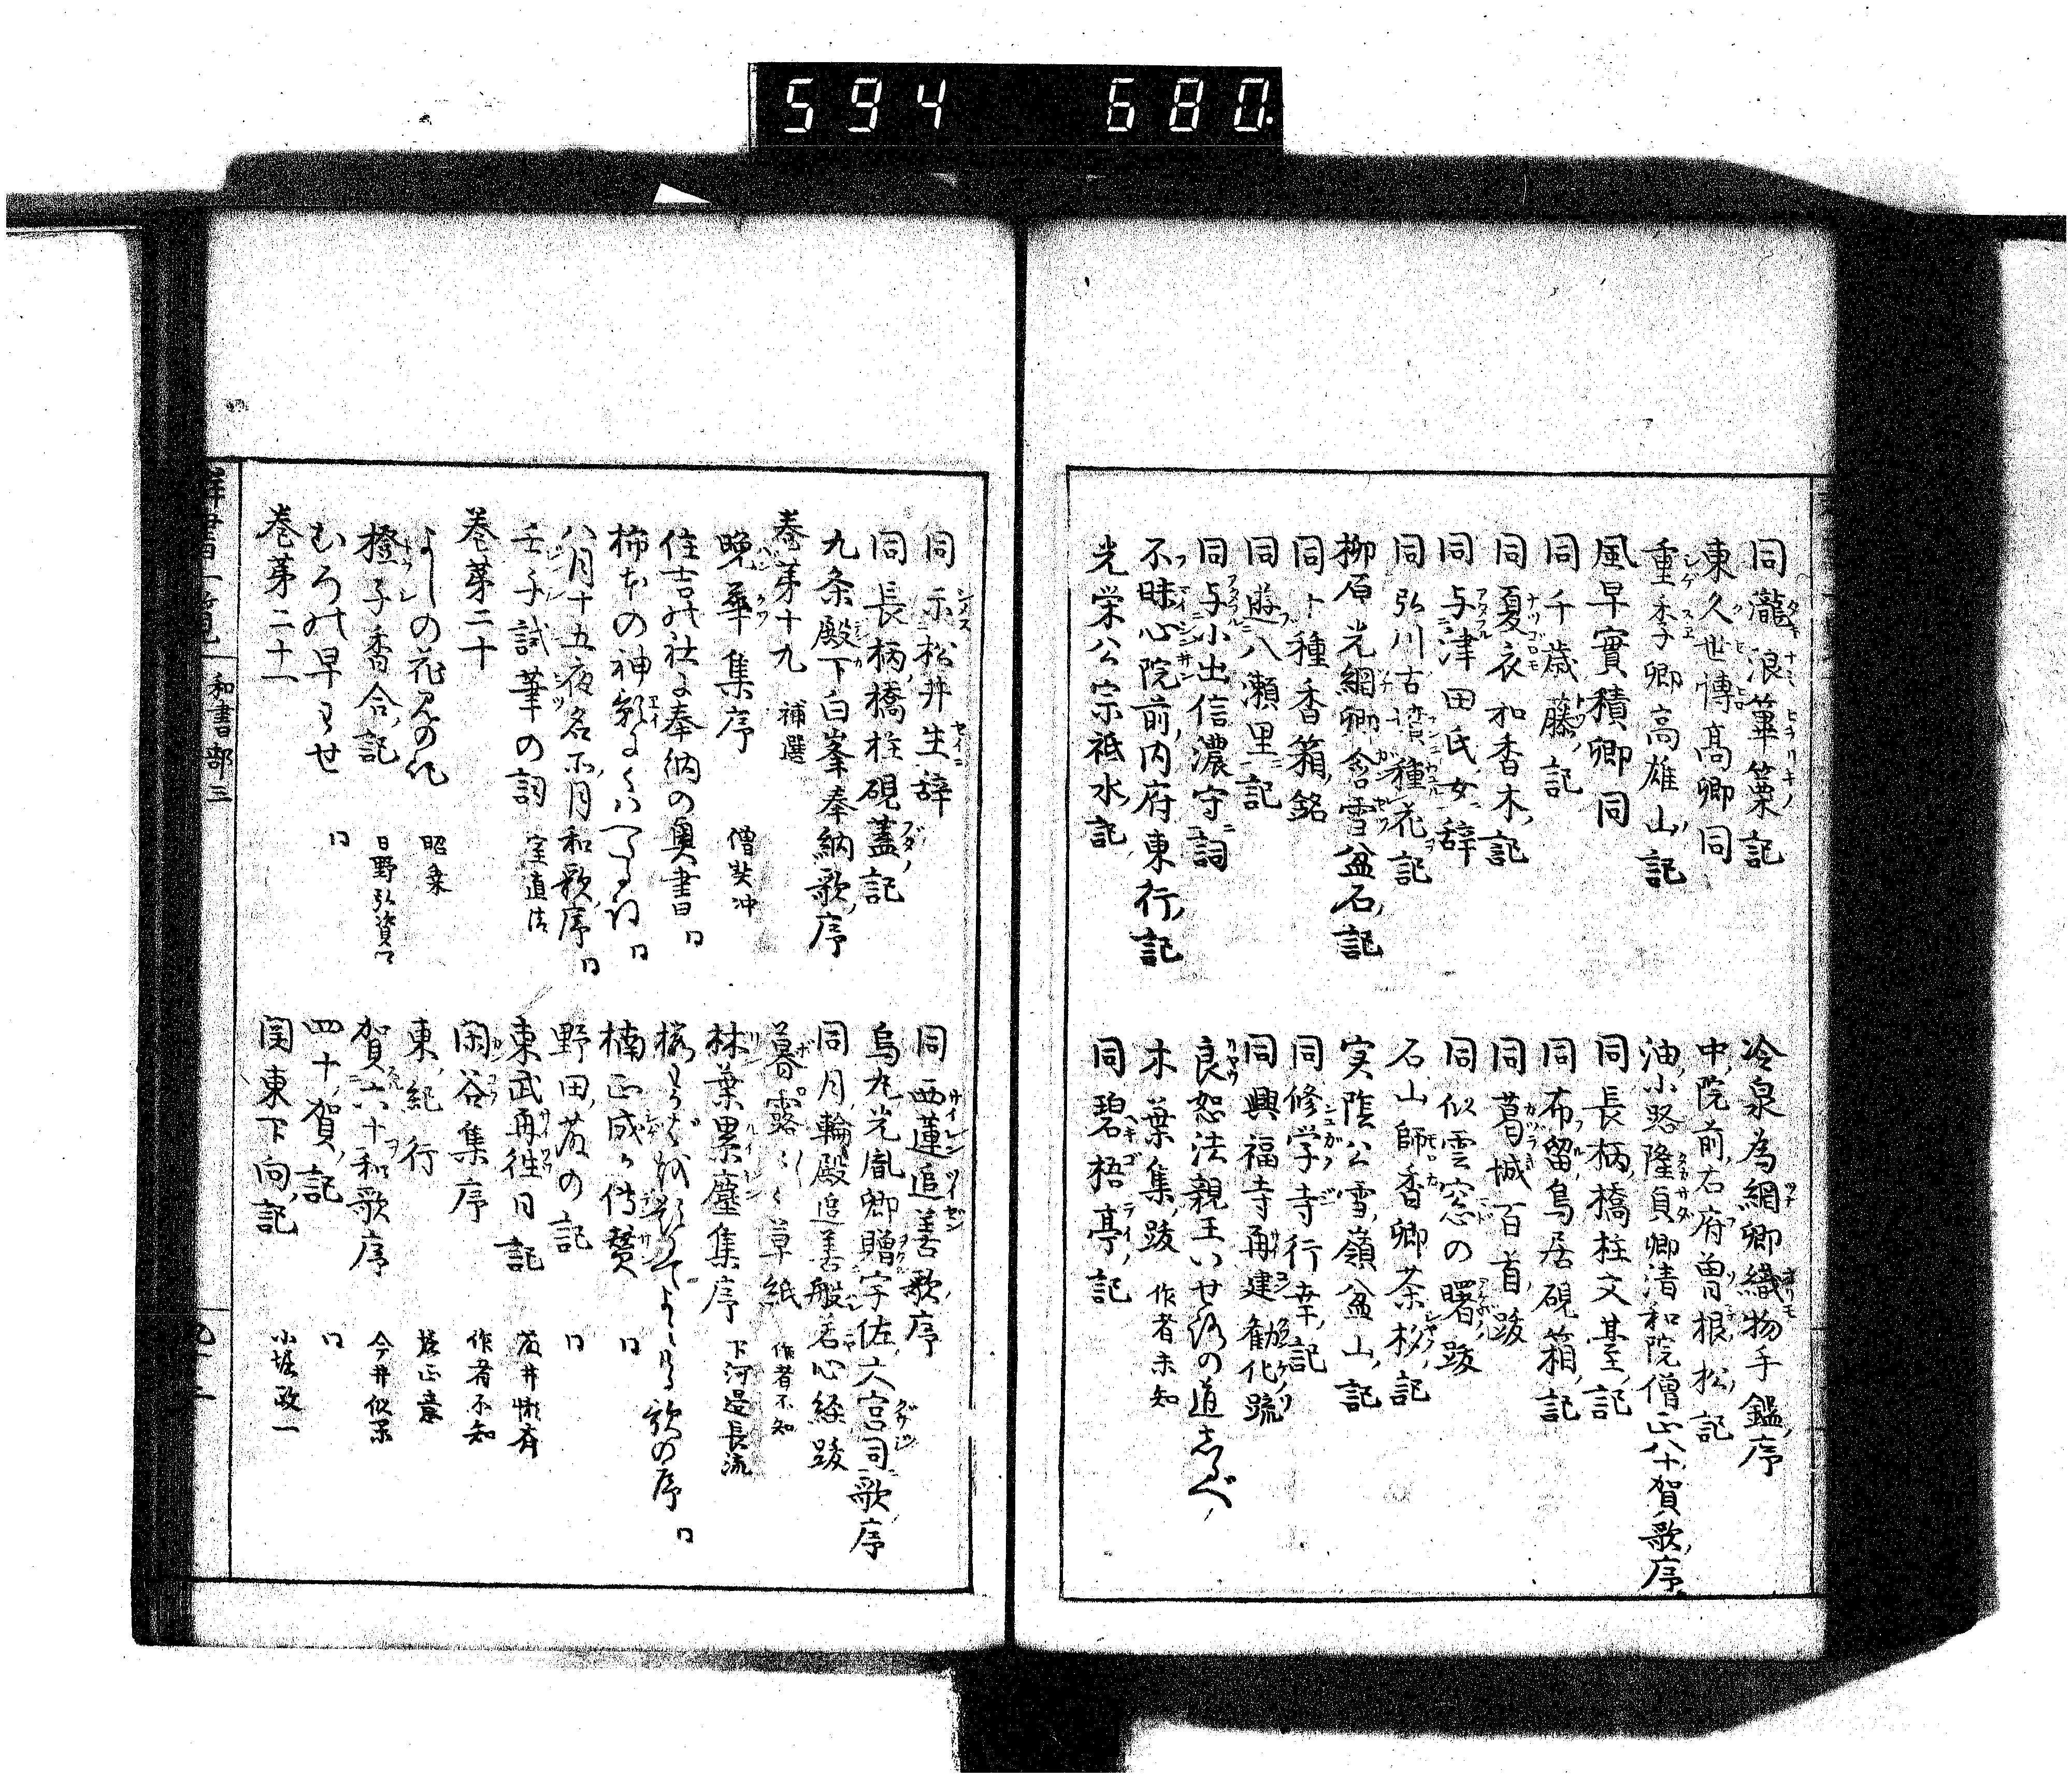 594 680
同瀧浪篳篥記
東久世博高卿同
重季卿高雄山記
風早實積卿同
同千歳藤記
同夏衣和香木記
同与津田氏女辞
同弘川古墳種花記
柳原光綱卿含雪盆石記
同十種香箱銘
同遊八瀬里記
同与小出信濃守詞
不昧心院前内府東行記
光栄公宗祗水記
冷泉為綱卿織物手鑑序
中院前右府曽根松記
油小路隆貞卿清和院僧正八十賀歌序
同長柄橋柱文臺記
同布留鳥居硯箱記
同葛城百首跋
同似雲窓の曙跋
石山師香卿茶杉記
実陰公雪嶺盆山記
同修学寺行幸記
同興福寺再建勧化疏
良恕法親王いせ路の道志るべ
木葉集跋 作者未知
同碧梧亭記
同示松井生辞
同長柄橋柱硯蓋記
九条殿下白峯奉納歌序
巻第十九 補選
晩華集序 僧契冲
住吉の社に奉納の奥書 口
八月十五夜名所月和歌序 口
壬子試筆の詞 室直清
巻第二十
橙子香合記 日野弘資
巻第二十一
同西蓮追善歌序
烏丸光胤卿贈宇佐大宮司歌序
同月輪殿追善般若心経跋
暮露々々草紙 作者不知
林葉累塵集序 下河邊長流
楠正成の伝賛 口
野田藤の記 口
東武再往日記
閑谷集序 作者不知
東紀行
賀六十和歌序 今井似閑
四十賀記 口
関東下向記 小堀政一
和書部三